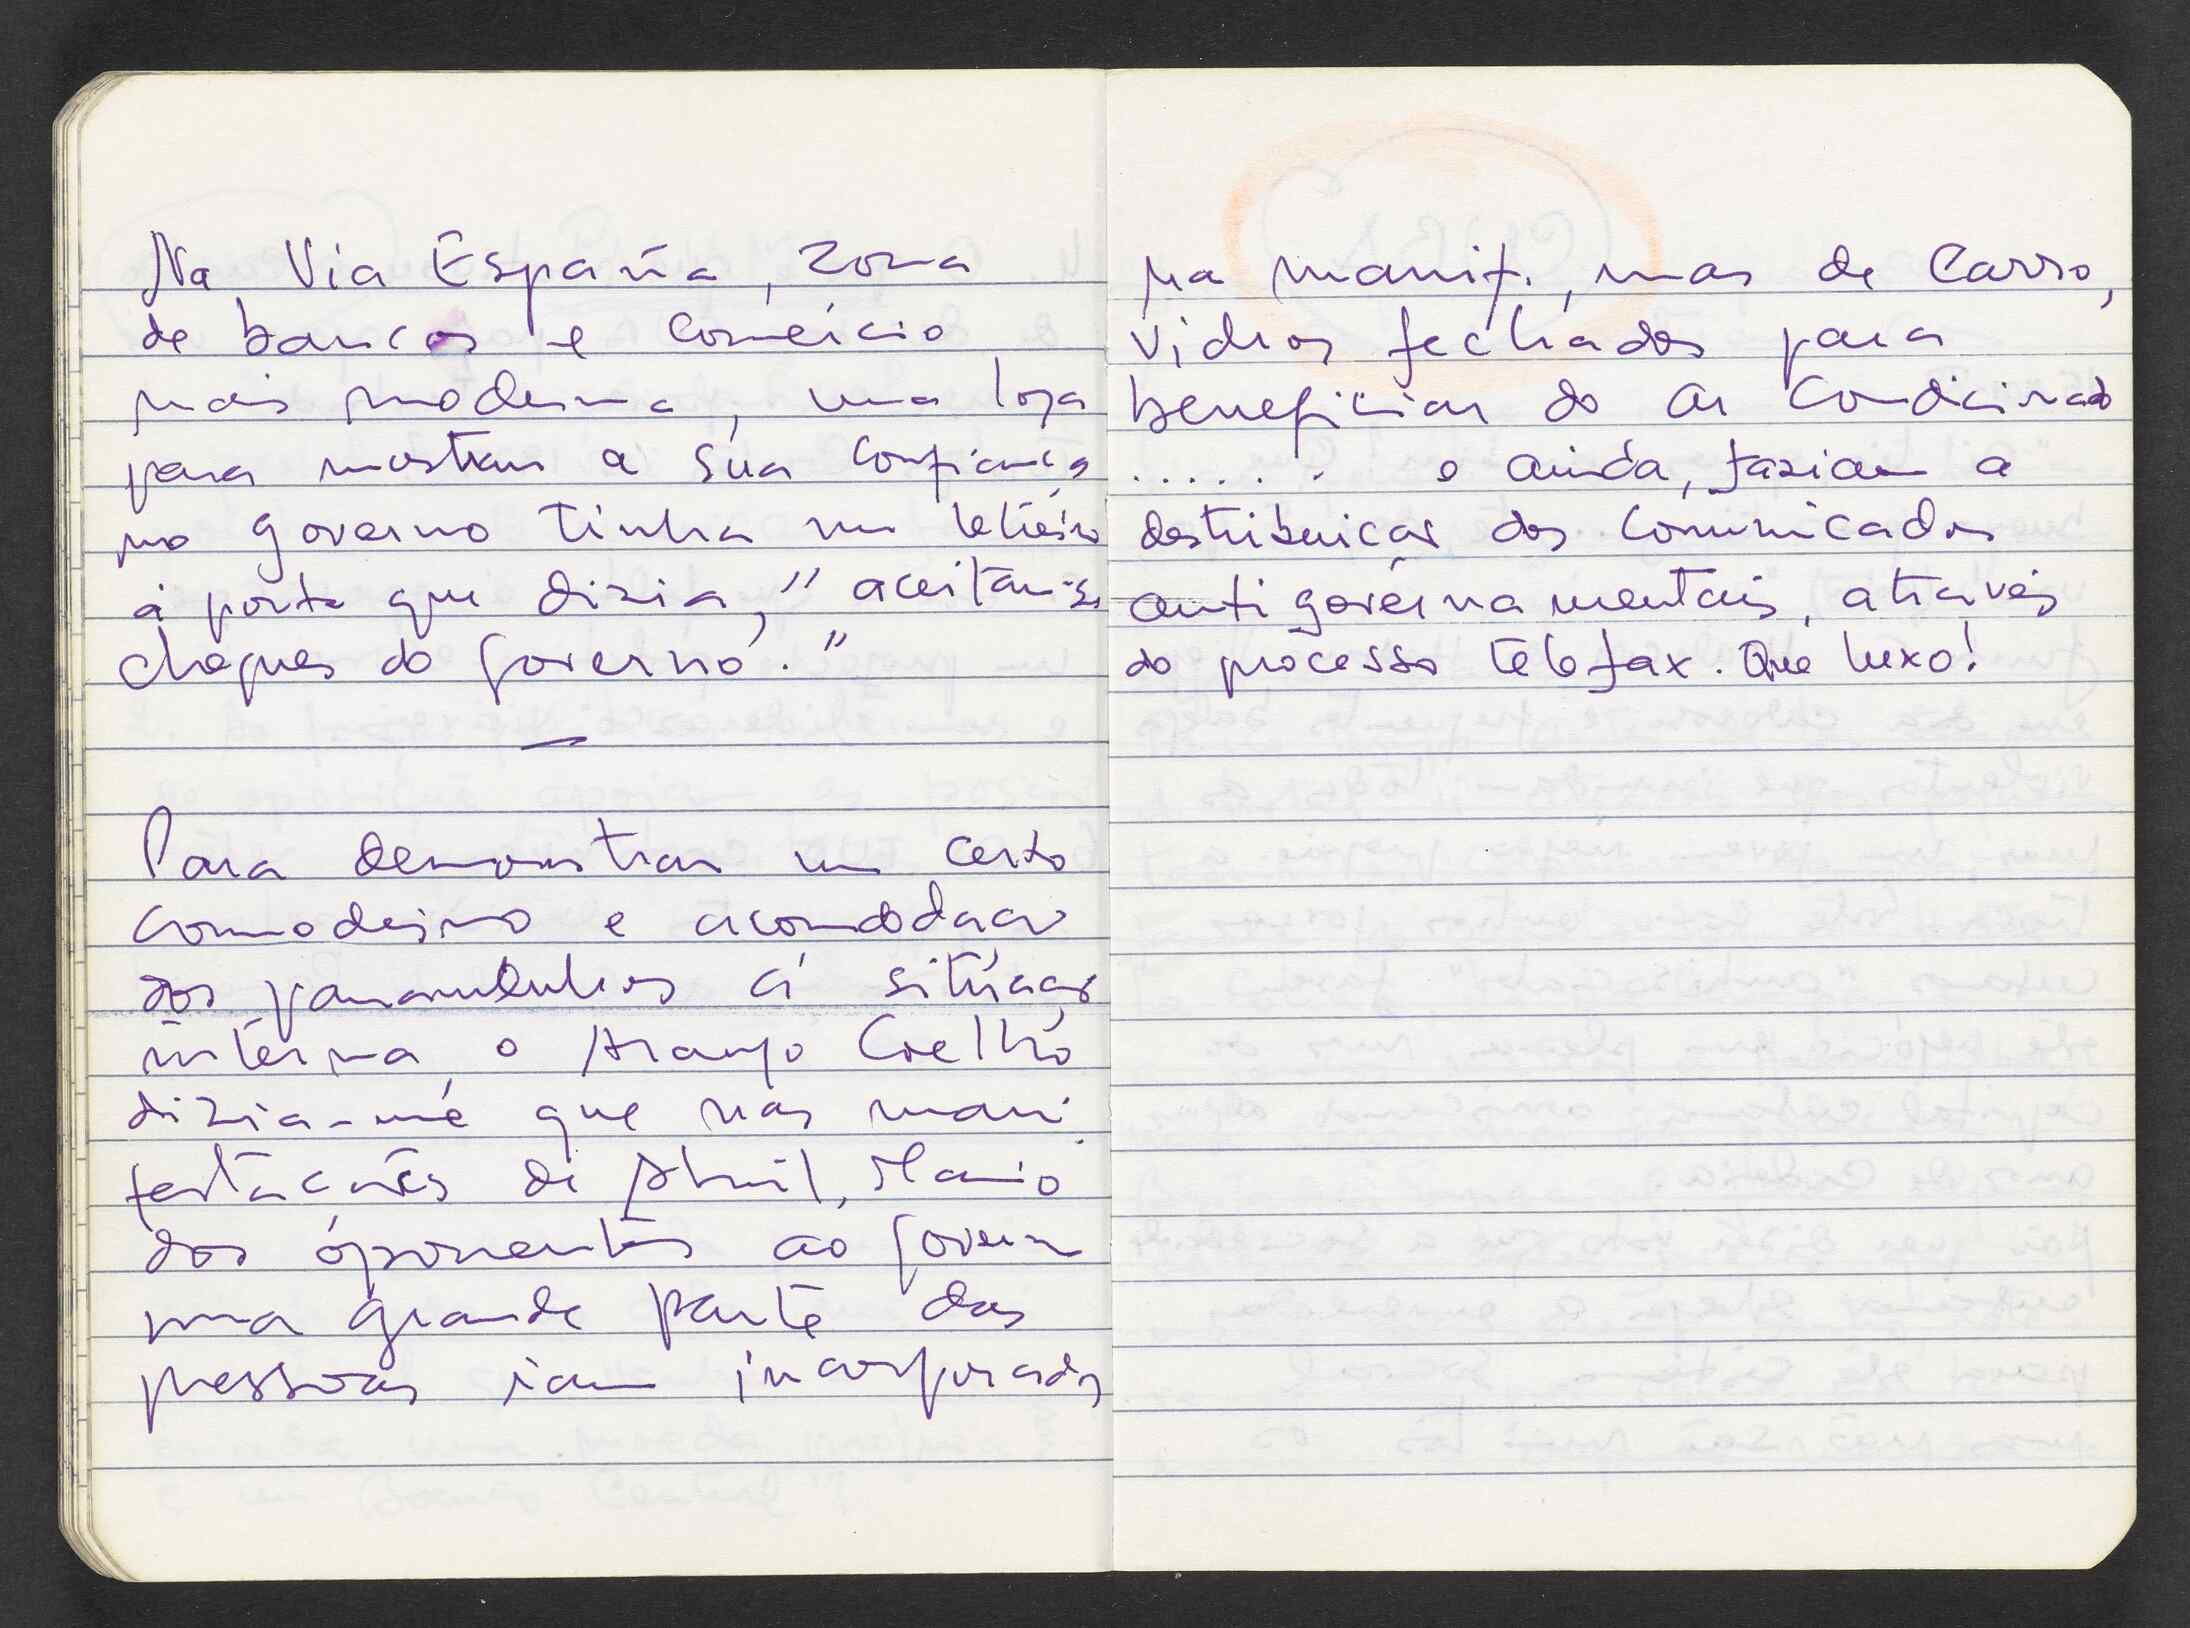 Na Via España, zona
de bancos e comércio
mais moderna, uma loja
para mostrar a sua confiança
no governo tinha um letreiro
à porta que dizia, "aceitam-se
cheques do governo."
Para demonstrar um certo
comodismo e acomodação
dos panamenhos à situação
interna, o Araujo Coelho
dizia-me que nas mani
festações de Abril, Maio
dos oponentes ao governo
uma grande parte das
pessoas iam incorporadas
na manif., mas de carro,
vidros fechados para
beneficiar do ar condicionado
...... e ainda, faziam a
destribuição dos comunicados
anti governamentais, através
do processo telefax. Que luxo!